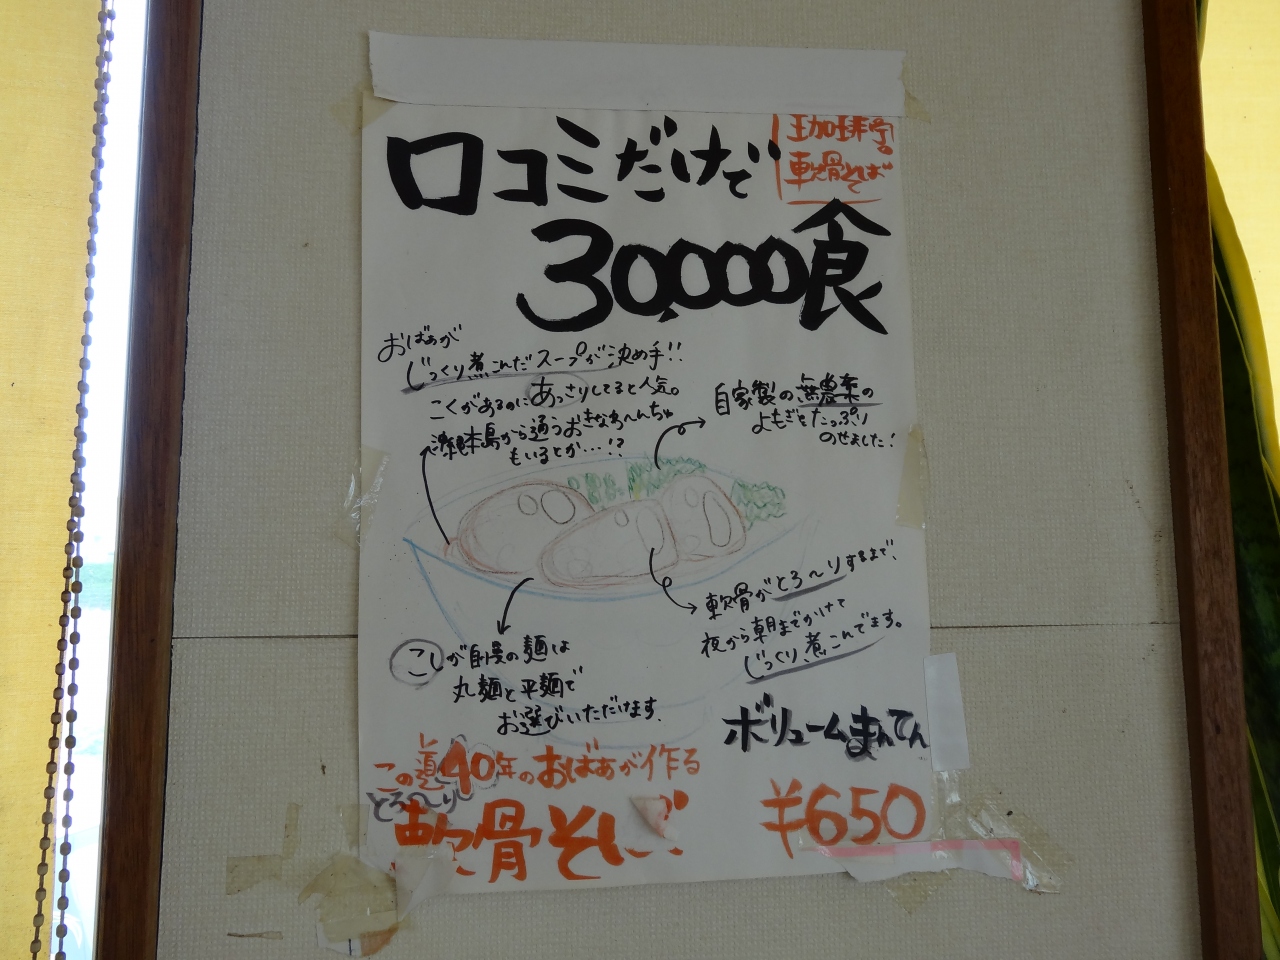 口コミだけで
珈琲亭。
軟骨そば
30,000食
おばぁが
じっくり煮こんだスープが決め手!!
こくがあるのにあっさりしてると人気。
本島から通うおきなわ〜んちゅ
もいるとか…!?
自家製の無農薬の
よもぎをたっぷり
のせました!
軟骨がとろ〜りするまで、
夜から朝までかけて
じっくり、煮こんでます。
こしが自慢の麺は
丸麺と平麺で
お選びいただけます。
ボリュームまんてん
この道40年のおばぁが作る
とろ〜り
軟骨そば
¥650